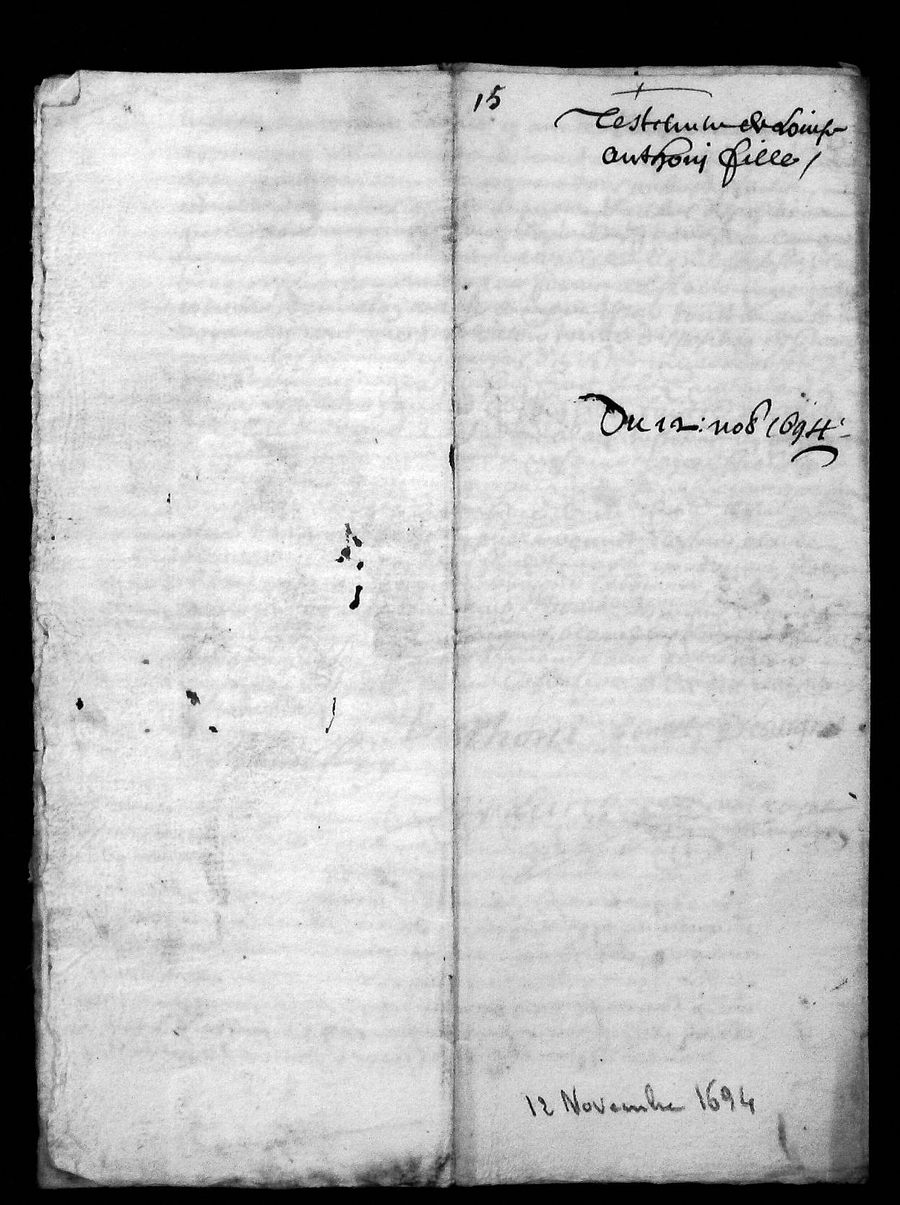 15
Testement de Louise
anthoni fille /
Du 12: no8 1694:
12 Novembre 1694